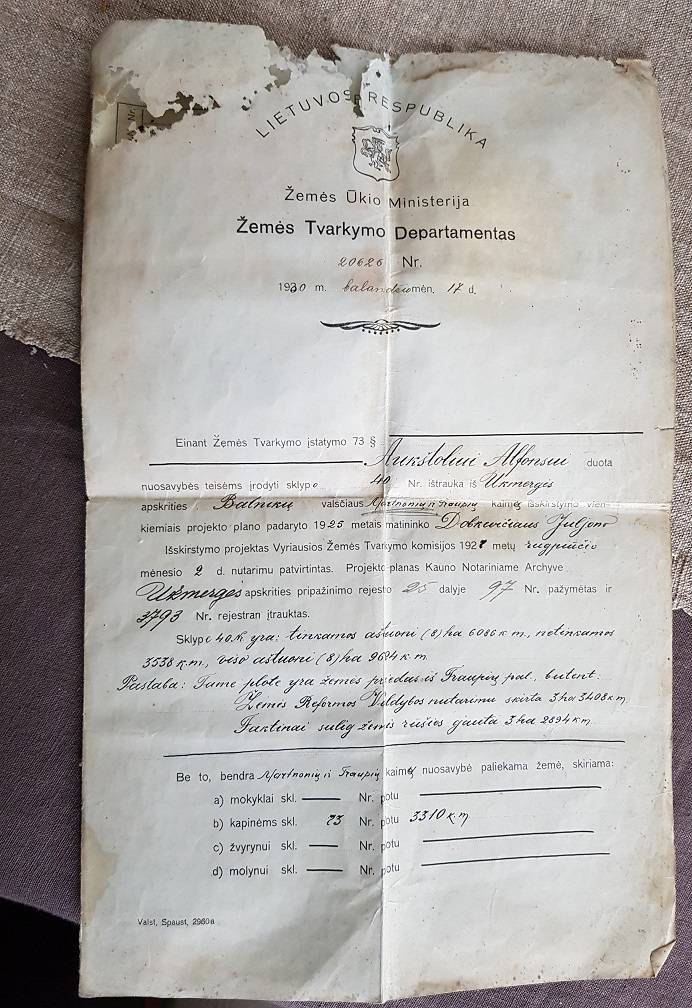 Nr.
LIETUVOS RESPUBLIKA
Žemės Ūkio Ministerija
Žemės Tvarkymo Departamentas
20626 Nr.
1930 m. balandžio mėn. 17 d.
Einant Žemės Tvarkymo įstatymo 73 §
Aukštoliui Alfonsui duota
nuosavybės teisėms įrodyti sklypo 40 Nr. ištrauka iš Ukmergės
apskrities Balnikų valsčiaus Martnonių ir Traupių kaimų išskirstymo vien-
kiemiais projekto plano padaryto 1925 metais matininko Dobkevičiaus Juljono
Išskirstymo projektas Vyriausios Žemės Tvarkymo komisijos 1927 metų rugpiučio
mėnesio 2 d. nutarimu patvirtintas. Projekto planas Kauno Notariniame Archyve
Užmergės apskrities pripažinimo rejesto 25 dalyje 97 Nr. pažymėtas ir
3793 Nr. rejestran įtrauktas.
Sklype 40 N. yra: tinkamos aštuoni (8) ha 6086 k m., netinkamos
3538 k.m., viso aštuoni (8) ha 9624 k m.
Pastaba: Tame plote yra žemės priedas iš Traupių pal., butent.
Žemės Reformos Valdybos nutarimu skirta 3 ha 3408 k m.
Faktinai sulig žemės rušies gauta 3 ha 2894 k m.
Be to, bendra Martnonių ir Traupių kaimų nuosavybė paliekama žemė, skiriama:
a) mokyklai skl. Nr. potu
b) kapinėms skl. 73 Nr. potu 3310 k m
c) žvyrynui skl. Nr. potu
d) molynui skl. Nr. potu
Valst, Spaust, 2960a